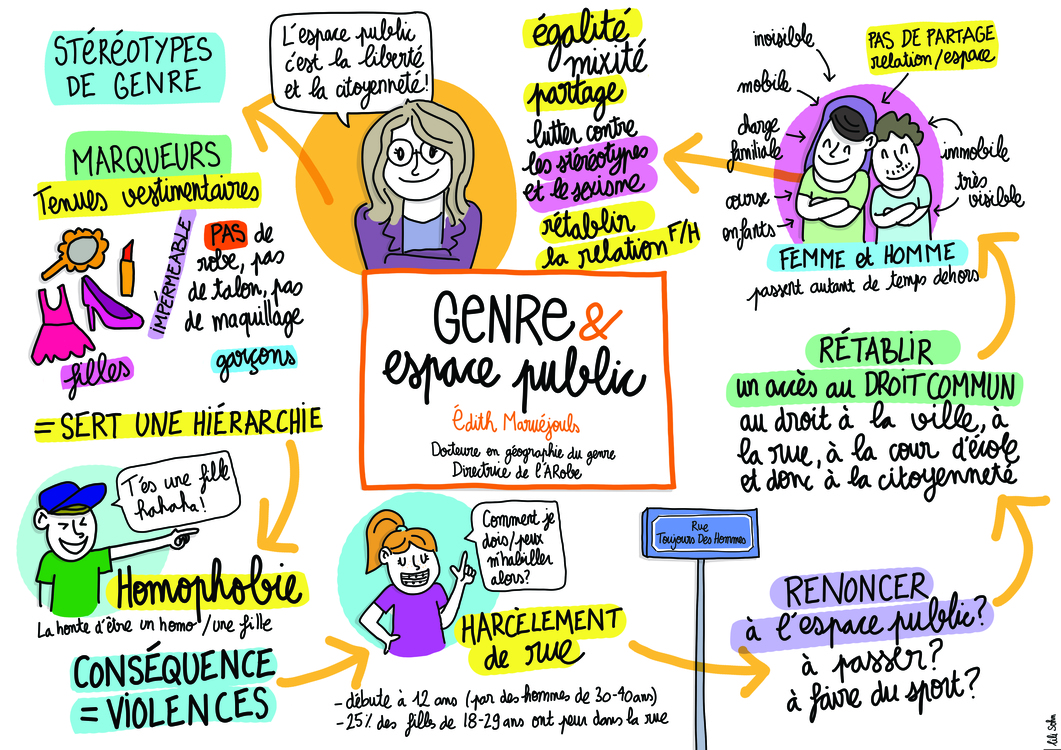 GENRE &
espace public
Édith Maruéjouls
Docteure en géographie du genre
Directrice de l'ARobe
L'espace public
c'est la liberté
et la citoyenneté!
STÉRÉOTYPES
DE GENRE
MARQUEURS
Tenues vestimentaires
IMPERMÉABLE
PAS de
robe, pas
de talon, pas
de maquillage
filles
garçons
= SERT UNE HIÉRARCHIE
T'és une fille
hahaha!
Homophobie
La honte d'être un homo/une fille
CONSÉQUENCE
= VIOLENCES
Comment je
dois/peux
m'habiller
alors?
HARCÈLEMENT
de rue
- débute à 12 ans (par des hommes de 30-40ans)
- 25% des filles de 18-29 ans ont peur dans la rue
Rue
Toujours Des Hommes
RENONCER
à l'espace public?
à passer?
à faire du sport?
RÉTABLIR
un accès au DROIT COMMUN
au droit à la ville, à
la rue, à la cour d'école
et donc à la citoyenneté
FEMME et HOMME
passent autant de temps dehors
invisible
mobile
charge
familiale
course
enfants
PAS DE PARTAGE
relation/espace
immobile
très
visible
égalité
mixité
partage
lutter contre
les stéréotypes
et le sexisme
rétablir
la relation F/H